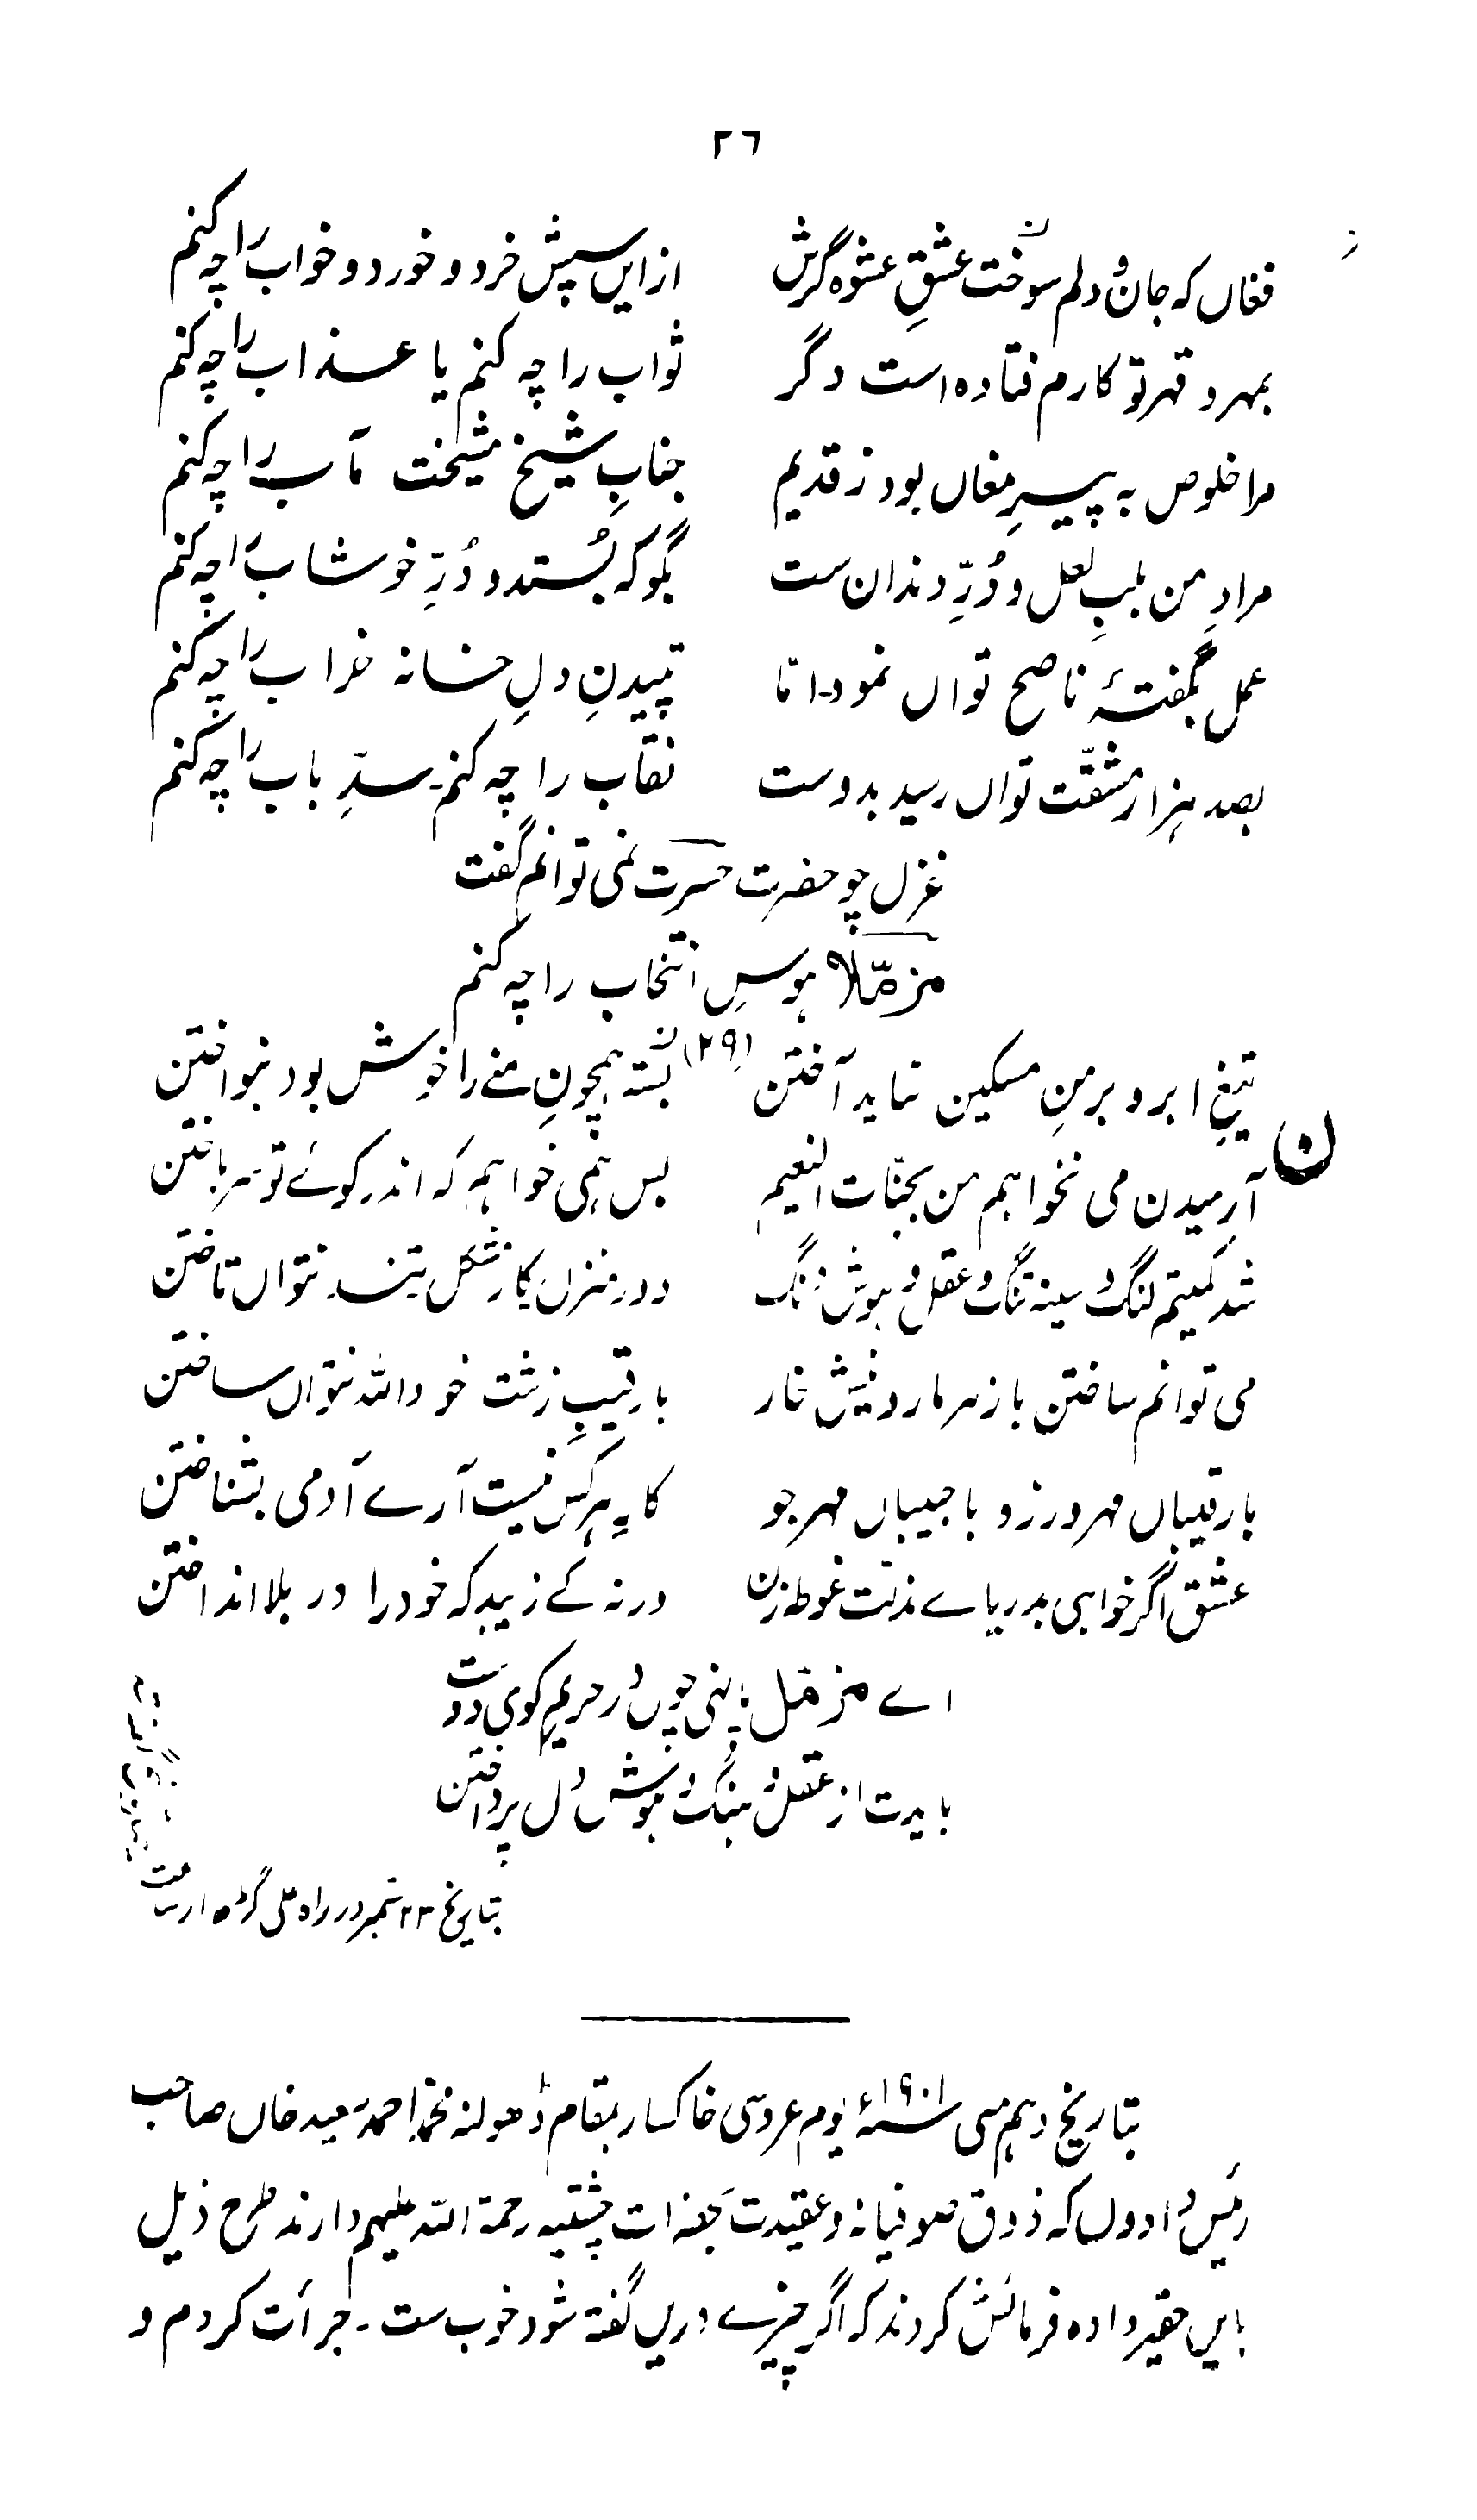 ٢٦
فغاں که جان و دلم سوخت عشقِ عشوه گرش ازایں سپش خرد و خورد و خواب را چه کنم
بمهر و قهر تو کارم فتاده است دگر ثواب را چه کنم یا عذاب را چه کنم
مرا خلوص به پیرِ مغاں بود ز قدیم جنابِ شیخ مشیخت مآب را چه کنم
مرادِ من بلبِ لعل و دُرِّ دندان ست بگو که بُستد و دُرِّ خوشاب را چه کنم
عمل بگفتۂ ناصح تواں نمود۔ امّا تپیدنِ دلِ خانه خراب را چه کنم
بصد هزار مشقّت تواں رسید بدوست نقاب را چه کنم۔ سدِّ باب را چه کنم
غزل چو حضرت حسرت نمی توانم گفت
مزمّلا هوسِ انتخاب را چه کنم
(۲۹)
تیغِ ابرو بر منِ مسکین نباید آختن کشته همچونِ منے را خوش بود بنواختن
ن
آرمیدن می نخواهم من بجنّات النعیم بس همی خواهم که اندر کوئے تو سر باختن
شد کمیتم لنگ و سینه تنگ و عقل و هوش دنگ در منزل کارِ مشکل تیز نتواں تاختن
می توانم ساختن با زهر مار و نیش خار با رقیبِ زشت خو والله نتواں ساختن
با رقیباں مهر ورزد با حبیباں مهر جو کارِ هر کس نیست آرے آدمی بشناختن
عشق اگر خواهی بدریاے مذلت غوطه زن ورنه کے زیبد که خود را در بلا انداختن
اے مزمّل پا نهی چوں در حریمِ کوی دوست
بایدت از عقل و ننگ و هوش دل پرداختن
بتاریخ ۲۳ ستمبر در راه علی گڑھ
بتاریخ دهم مئی سنه ۱۹۰۱ء یوم عروسی خاکسار بمقام ڈھولنه محمد احمد سعید خاں صاحب
رئیس دادوں که ذوق صوفیانه و عقیدت بحضرات چشتیه رحمة الله علیهم دارند طرح ذیل
بایں حقیر داده فرمائش کردند که اگر چیزے دریں گفته شود خوب ست۔ جرأت کردم و